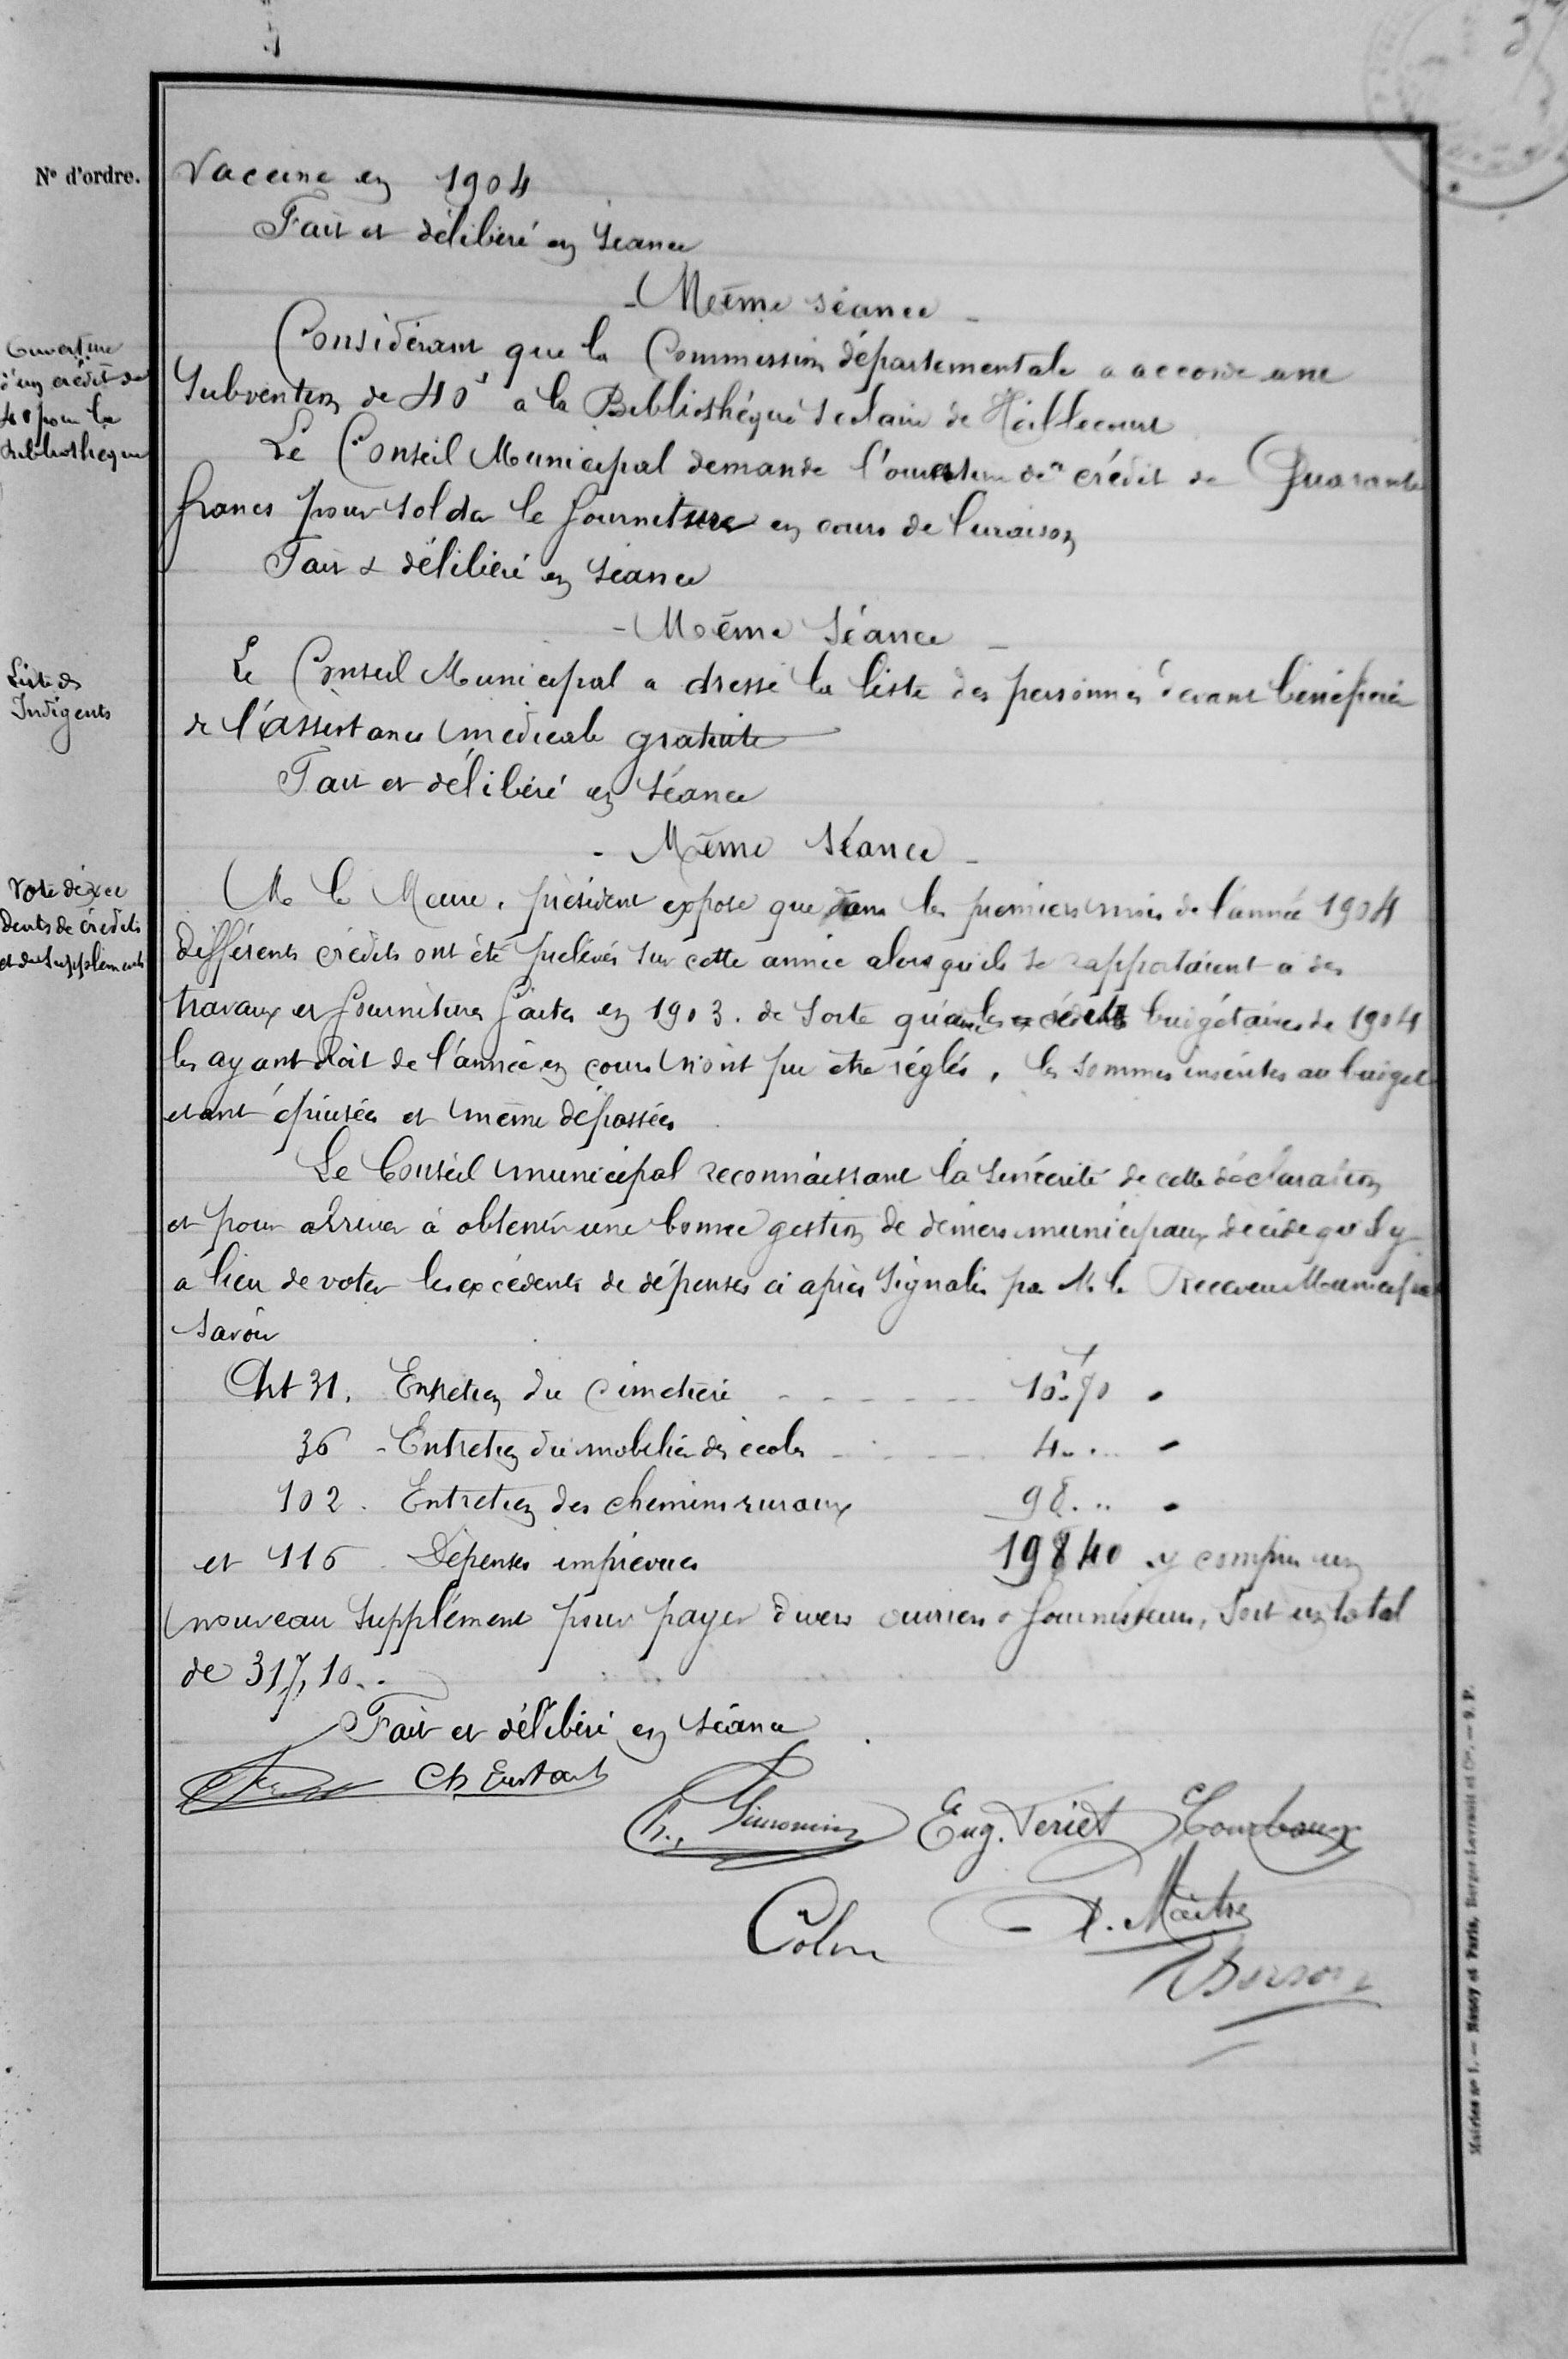 N° d'ordre.
Vaccine en 1904
Fait et délibéré en séance
- Même séance -
Ouverture
d'un crédit de
40 pour la
bibliothèque
Considérant que la Commission départementale a accordé une
Subvention de 40f a la Bibliothéque scolaire de Heillecourt
Le Conseil Municipal demande l'ouverture d'un crédit de Quarante
francs pour solder le fourniture en cours de livraison
Fait & délibéré en séance
- Même Séance -
Liste des
Indigents
Le Conseil Municipal a dressé la liste des personnes devant bénéficier
de l'assistance médicale gratuite
Fait et délibéré en séance
- Même Séance -
Vote d'excé
dents de crédits
et de suppléments
M le Maire, président expose que dans les premiers mois de l'année 1904
différents crédits ont été prélevés sur cette année alors qu'ils se rapportaient a des
travaux et fournitures faites en 1903. de sorte qu'avec les crédits budgétaires de 1904
les ayant droit de l'année en cours n'ont pu être réglés, les sommes inscrites au budget
étant épuisées et même dépassées
Le Conseil municipal reconnaissant la sincérité de cette déclaration
et pour arriver à obtenir une bonne gestion de deniers municipaux décide qu'il y
a lieu de voter les excédents de dépenses ci après signalés par M. le Receveur Municipal
savoir
Art 31. Entretien du Cimetière 16.70
36 - Entretien du mobilier des écoles 4
102. Entretien des chemins ruraux 98
et 116. Dépenses imprévues 198 40 y compris un
nouveau supplément pour payer divers ouvriers & fournisseurs, soit un total
de 317,10
Fait et délibéré en séance
Ch Eustach
Eug. Tériet
Colin
D. Maitre
Mairies n° 1. — Nancy et Paris, Berger-Levrault et Cie. — 9. P.